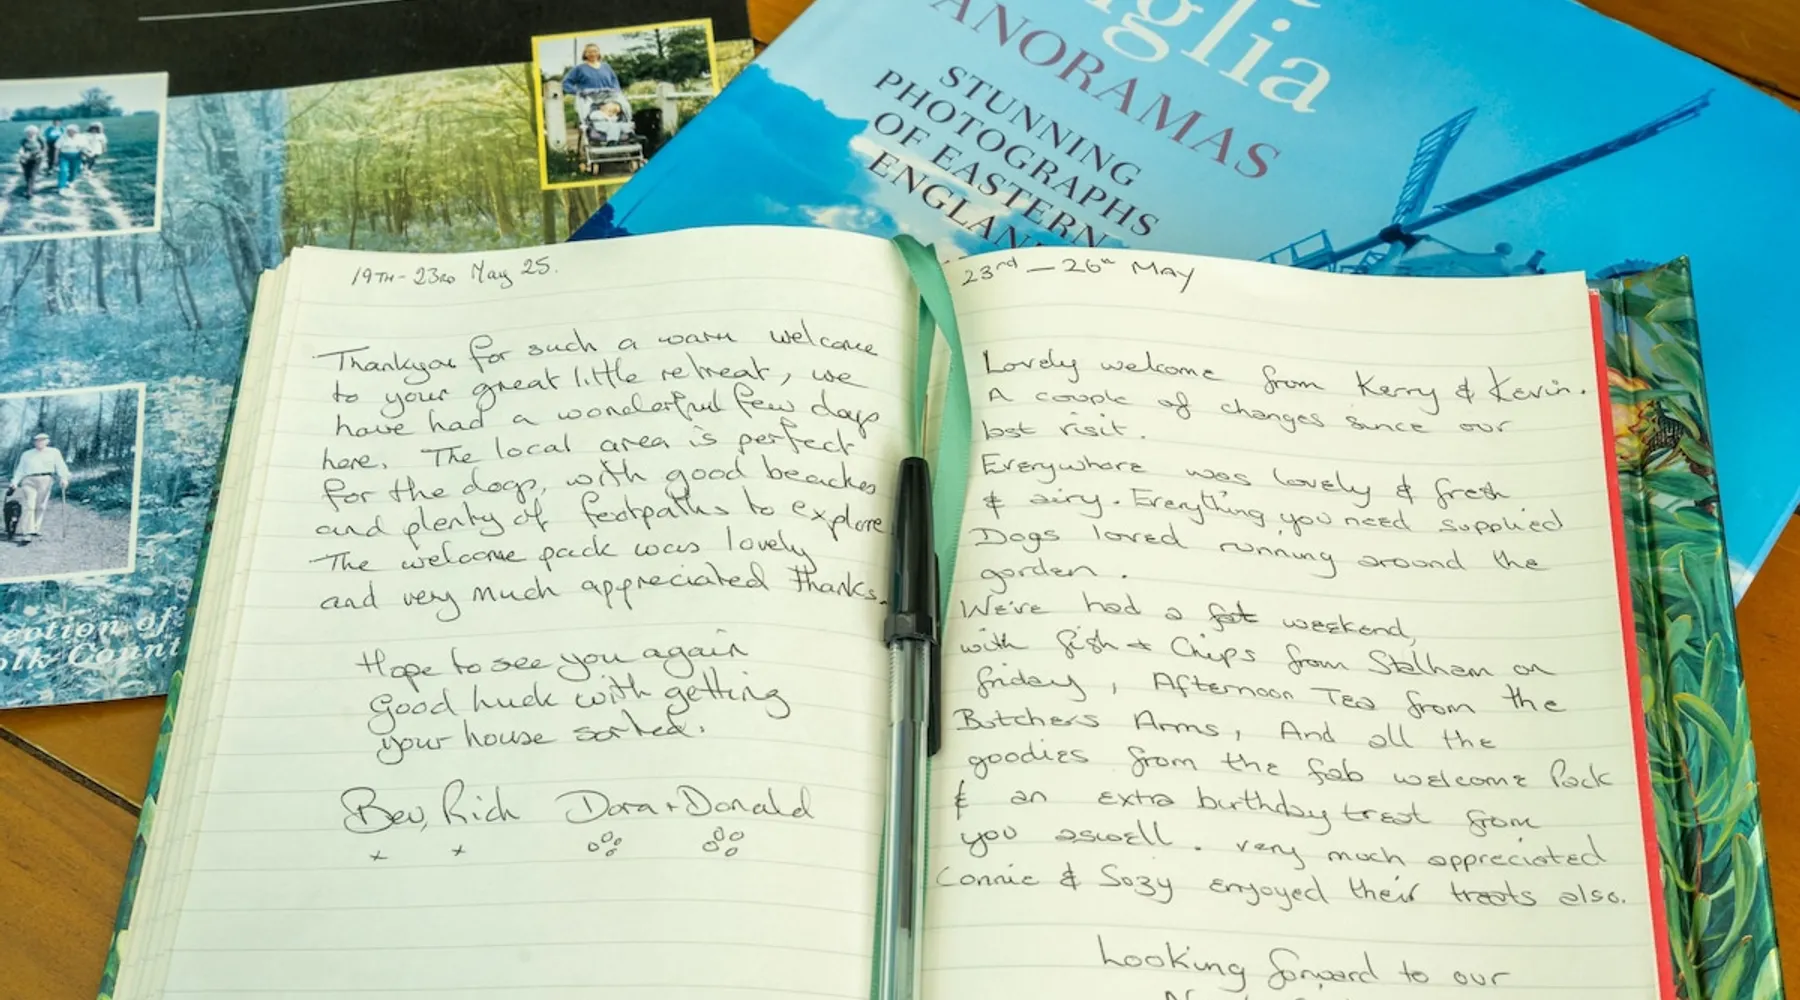 glia
ANORAMAS
STUNNING
PHOTOGRAPHS
OF EASTERN
ENGLAN
ection of
olk Count
19TH - 23RD May 25.
Thankyou for such a warm welcome
to your great little retreat, we
have had a wonderful few days
here. The local area is perfect
for the dogs, with good beaches
and plenty of footpaths to explore
The welcome pack was lovely
and very much appreciated thanks.
Hope to see you again
Good luck with getting
your house sorted.
Bev, Rich Dora + Donald
x x
23rd - 26th May
Lovely welcome from Kerry & Kevin.
A couple of changes since our
last visit.
Everywhere was lovely & fresh
& airy. Everything you need supplied
Dogs loved running around the
garden.
We've had a fat weekend,
with fish + Chips from Stalham on
friday, Afternoon Tea from the
Butchers Arms, And all the
goodies from the fab welcome Pack
& an extra birthday treat from
you aswell. very much appreciated
Connie & Suzy enjoyed their treats also.
Looking forward to our